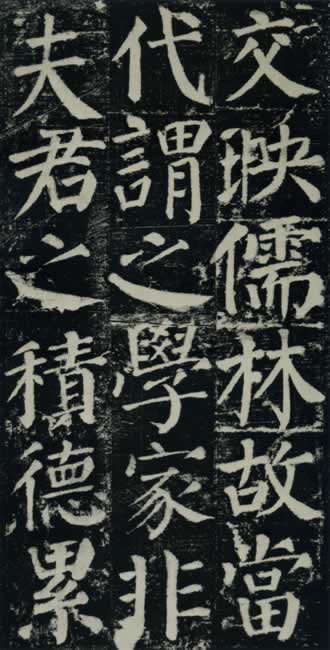 交映儒林故當
代謂之學家非
夫君之積德累